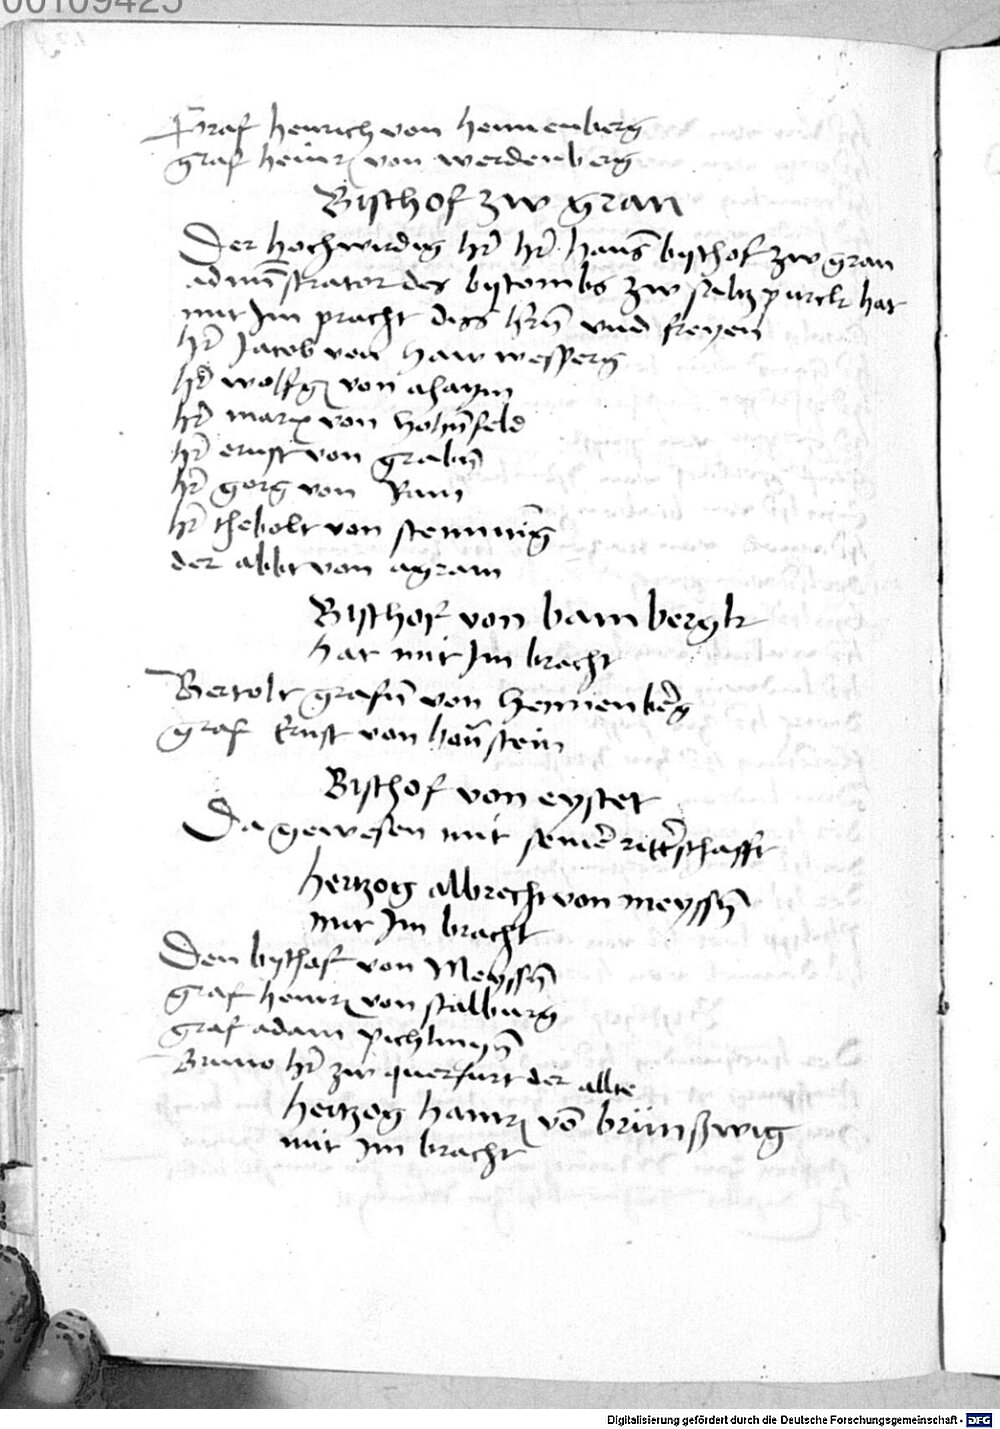 00109425
Graf henrich von hennenberg
graf heinrz von werdenberg
Bischof zw gran
Der hochwirdig hr̄ hr̄ hanß bischof zw gran
admīstrator des bistombs zw saltzpurck hat
mit Im pracht diss hrn̄ vnd freyen
hr̄ Jacob von haw wesperg
hr̄ wolfg von ahaym
hr̄ marx von hohn̄feld
hr̄ ernst von grabn̄
hr̄ gorg von Ram
hr̄ thebolt von
der abbt von agram
Bischof von bambergk
hat mit Im bracht
Bertolt grafn̄ von hennenberg
graf Ernst von hon̄stein
Bischof von eystet
Da gewesen mit seinē rittrschafft
hertzog albrecht von meyssn̄
mit Im bracht
Den bischof von Meyssn̄
graf heinrz von stalburg
graf adam pichlingn̄
Bruno hr̄ zw querfurt der allte
hertzog hainrz vō brünßwig
mit Im bracht
Digitalisierung gefördert durch die Deutsche Forschungsgemeinschaft - DFG